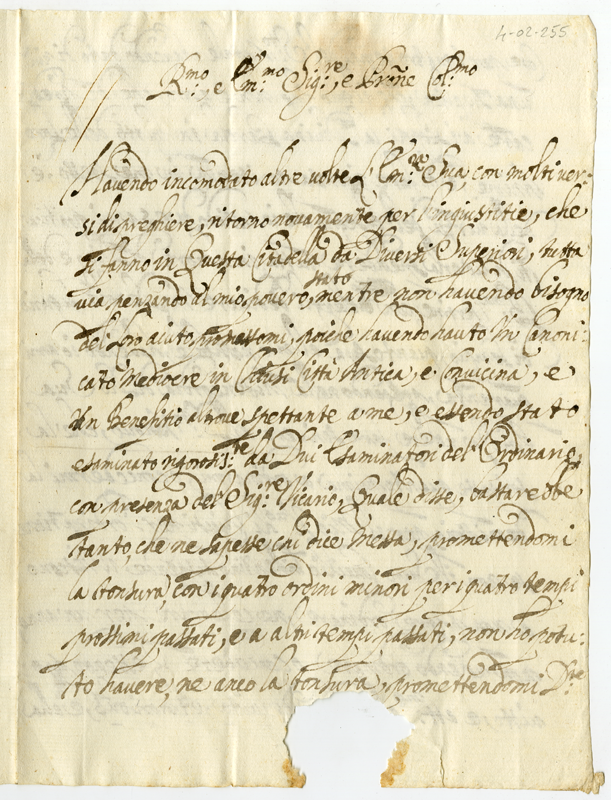 4-02-255
R.mo, e Ill.mo Sig.re, e Prõne Col.mo
Havendo incomodato altre volte V.S. Ill.ma Sua, con molti ver-
si di preghiere, ritorno novamente per l'ingiustitie, che
si fanno in Questa Citadella da Diversi Superiori, tutta
via penzando al mio povero stato, mentre non havendo bisogno
del loro aiuto, poiche havendo hauto Un Canoni:
cato Mediocre in Chiusi Città Antica, e Convicina, e
Un Benefitio altrove spettante a me, e essendo stato
esaminato rigorosis:te da Dui Esaminatori del Ordinario,
con presenza del Sig:re Vicario, Quale disse, bastarebbe
tanto, che ne sapesse chi dice Messa, promettendomi
la tonsura, con i quatro ordini minori per i quatro tempi
prossimi passati, e a altri tempi passati, non ho potu:
to havere, ne anco la tonsura, promettendomi D:re